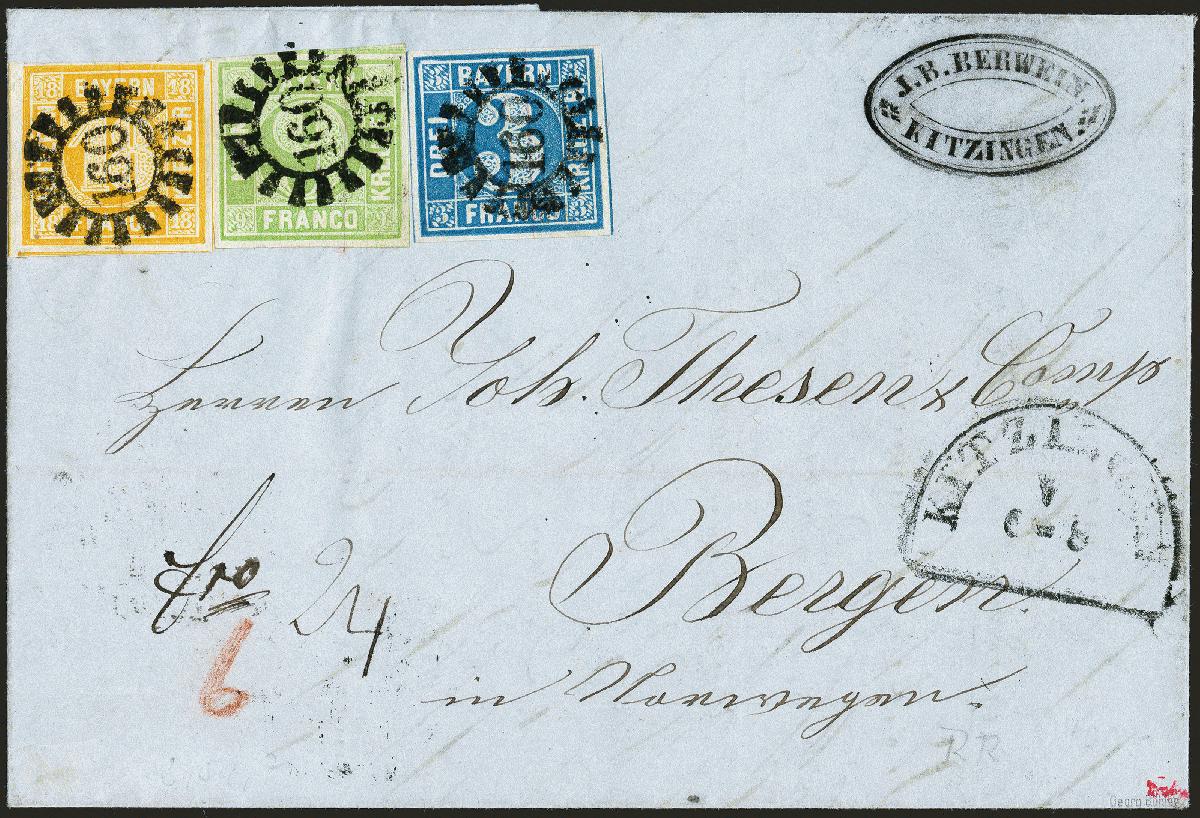 18 BAYERN 18
KREUZER
18 FRANCO 18
160
KREUZER
9 FRANCO 9
160
3 BAYERN 3
DREI KREUZER
FRANCO
160
J. B. BERWEIN.
KITZINGEN.
Herren Joh. Thesen & Comp
KITZINGEN
fro 24
Bergen.
6
in Norwegen.
RR